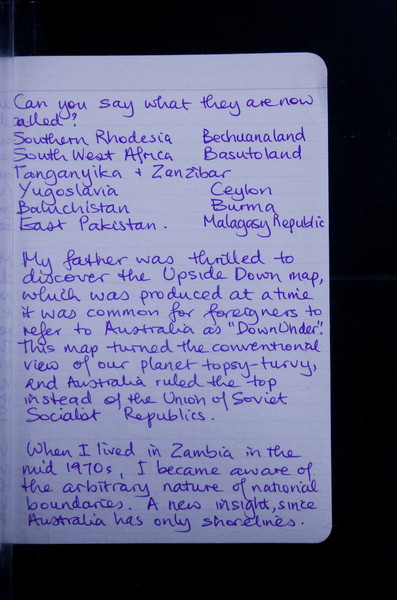 Can you say what they are now
called?
Southern Rhodesia Bechuanaland
South West Africa Basutoland
Tanganyika + Zanzibar
Yugoslavia Ceylon
Baluchistan Burma
East Pakistan. Malagasy Republic
My father was thrilled to
discover the Upside Down map,
which was produced at a time
it was common for foreigners to
refer to Australia as "DownUnder".
This map turned the conventional
view of our planet topsy-turvy,
and Australia ruled the top
instead of the Union of Soviet
Socialist Republics.
When I lived in Zambia in the
mid 1970s, I became aware of
the arbitrary nature of national
boundaries. A new insight, since
Australia has only shorelines.